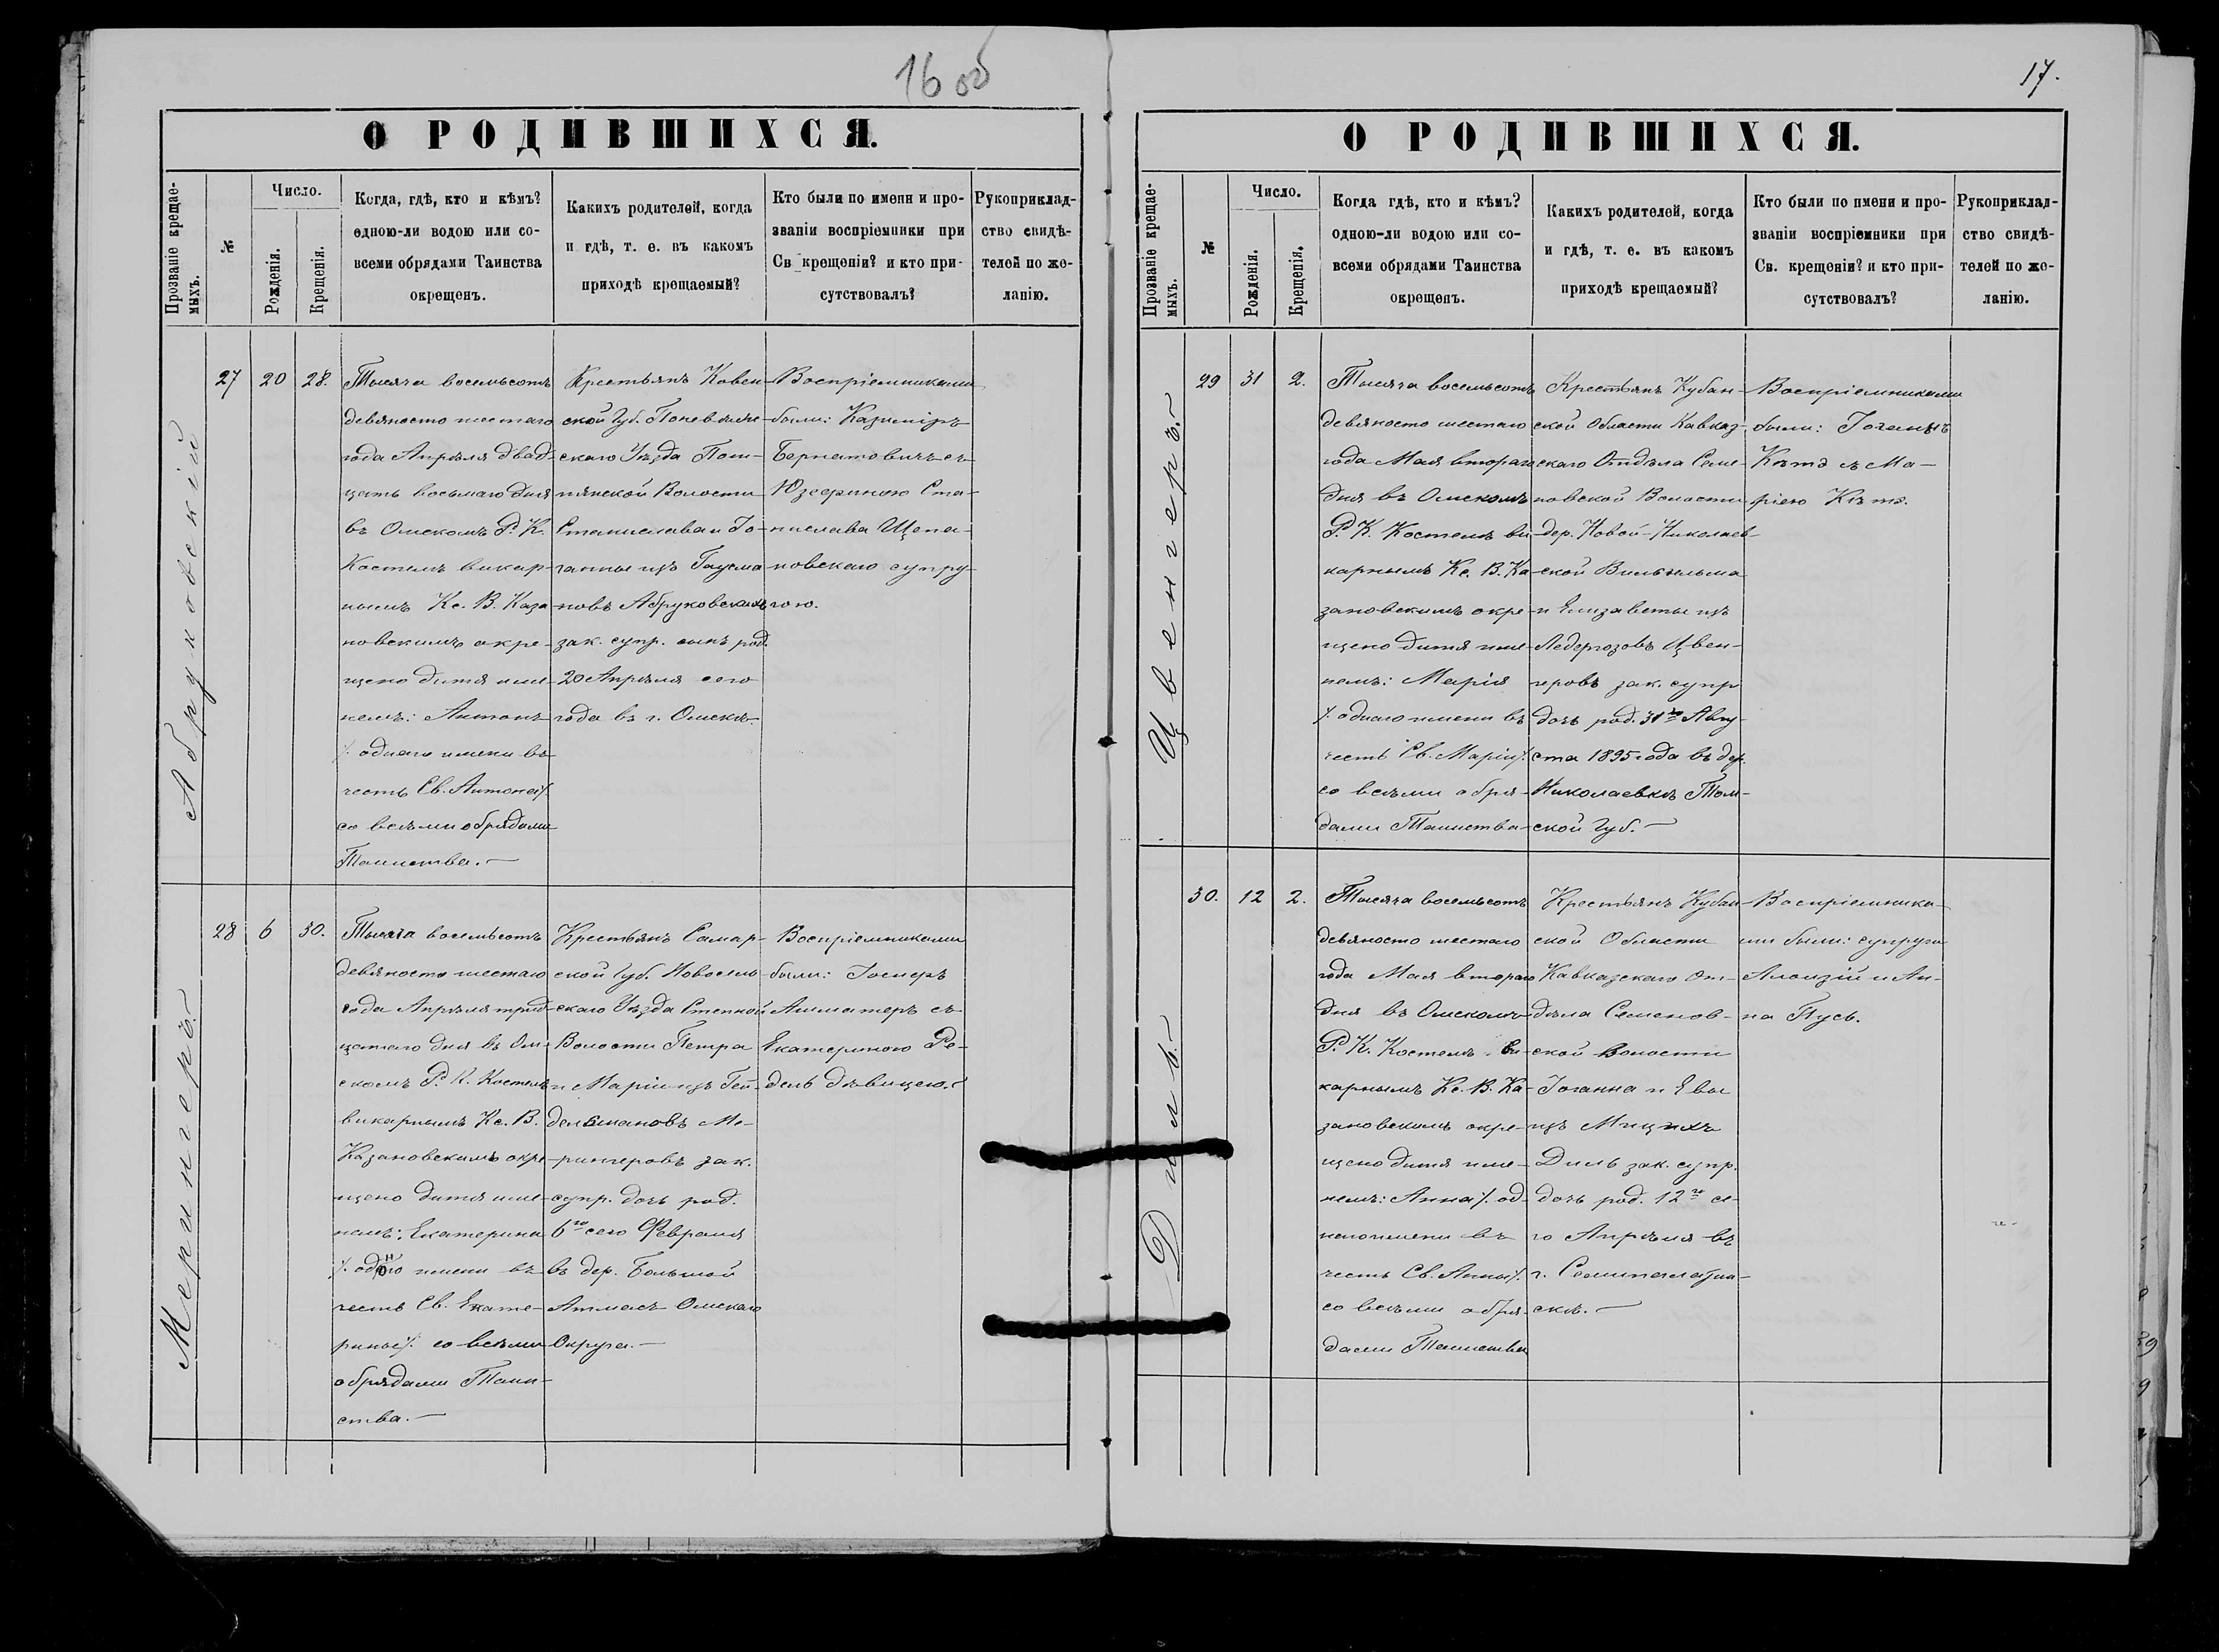 16 об
О РОДИВШИХСЯ.
Прозваніе крещае-
мыхъ.
№
Число.
Рожденія.
Крещенія.
Когда, гдѣ, кто и кѣмъ?
одною-ли водою или со-
всеми обрядами Таинства
окрещенъ.
Какихъ родителей, когда
и гдѣ, т. е. въ какомъ
приходѣ крещаемый?
Кто были по имени и про-
званіи воспріемники при
Св крещеніи? и кто при-
сутствовалъ?
Рукоприклад-
ство свидѣ-
телей по же-
ланію.
Абруковскій
27
20
28.
Тысяча восемьсотъ
девяносто шестаго
года Апрѣля двад-
цать восьмаго дня
въ Омскомъ Р. К.
Костелѣ викар-
нымъ Кс. В. Каза
новскимъ окре-
щено дитя име-
немъ: Антонъ
/. однаго имени въ
честь Св. Антона/.
со всѣми обрядами
Таинства. —
Крестьянъ Ковен
ской Губ. Поневѣж-
скаго Уѣзда
Волости
Станислава и Іо-
ганны изъ Гаусма
новъ Абруковскихъ
зак. супр. сынъ род.
20 Апрѣля сего
года въ г. Омскѣ.
Воспріемниками
были: Казиміръ
Бернатовичъ съ
Юзефиною Ста-
нислава Щепа-
новскаго супру-
гою.
Мерингеръ. —
28
6
30.
Тысяча восемьсотъ
девяносто шестаго
года Апрѣля трид-
цатаго дня въ Ом-
скомъ Р. К. Костелѣ
викарнымъ Кс. В.
Казановскимъ окре
щено дитя име-
немъ: Екатерина
/. одного имени въ
честь Св. Екате-
рины/. со всѣми
обрядами Таин-
ства. —
Крестьянъ Самар-
ской Губ. Новоузен-
скаго Уѣзда Степной
Волости Петра
и Маріи изъ Гей-
дельмановъ Ме-
рингеровъ зак.
супр. дочь род.
6го сего Февраля
въ дер. Большой
Атмасъ Омскаго
Округа. —
Воспріемниками
были: Іосифъ
съ
Екатериною Ре-
дель дѣвицею. —
17.
О РОДИВШИХСЯ.
Прозваніе крещае-
мыхъ.
№
Число.
Рожденія.
Крещенія.
Когда гдѣ, кто и кѣмъ?
одною-ли водою или со-
всеми обрядами Таинства
окрещенъ.
Какихъ родителей, когда
и гдѣ, т. е. въ какомъ
приходѣ крещаемый?
Кто были по имени и про-
званіи воспріемники при
Св. крещеніи? и кто при-
сутствовалъ?
Рукоприклад-
ство свидѣ-
телей по же-
ланію.
Цвенгеръ. —
29
31
2.
Тысяча восемьсотъ
девяносто шестаго
года Мая втораго
дня въ Омскомъ
Р. К. Костелѣ ви-
карнымъ Кс. В. Ка-
зановскимъ окре-
щено дитя име-
немъ: Марія
/. однаго имени въ
честь Св. Маріи/.
со всѣми обря-
дами Таинства
Крестьянъ Кубан-
ской Области Кавказ-
скаго Отдѣла Семе-
новской Волости
дер. Новой-Николаев-
ской Вильгельма
и Елизаветы изъ
Ледергозовъ Цвен-
геровъ зак. супр
дочь род. 31го Авгу-
ста 1895 года въ дер.
Николаевкѣ Том-
ской Губ. —
Воспріемниками
были: Іоганнъ
Кѣтэ съ Ма-
ріею Кѣтэ.
Диль. —
30.
12
2.
Тысяча восемьсотъ
девяносто шестаго
года Мая втораго
дня въ Омскомъ
Р. К. Костелѣ ви-
карнымъ Кс. В. Ка-
зановскимъ окре-
щено дитя име-
немъ: Анна/. од-
ного имени въ
честь Св. Анны/.
со всѣми обря-
дами Таинства
Крестьянъ Кубан
ской Области
Кавказскаго От-
дѣла Семенов-
ской Волости
Іоганна и Евы
изъ Мицихъ
Диль зак. супр.
дочь род. 12го се-
го Апрѣля въ
г. Семипалатин-
скѣ. —
Воспріемника-
ми были: супруги
Алоизій и Ан-
на Пусъ.